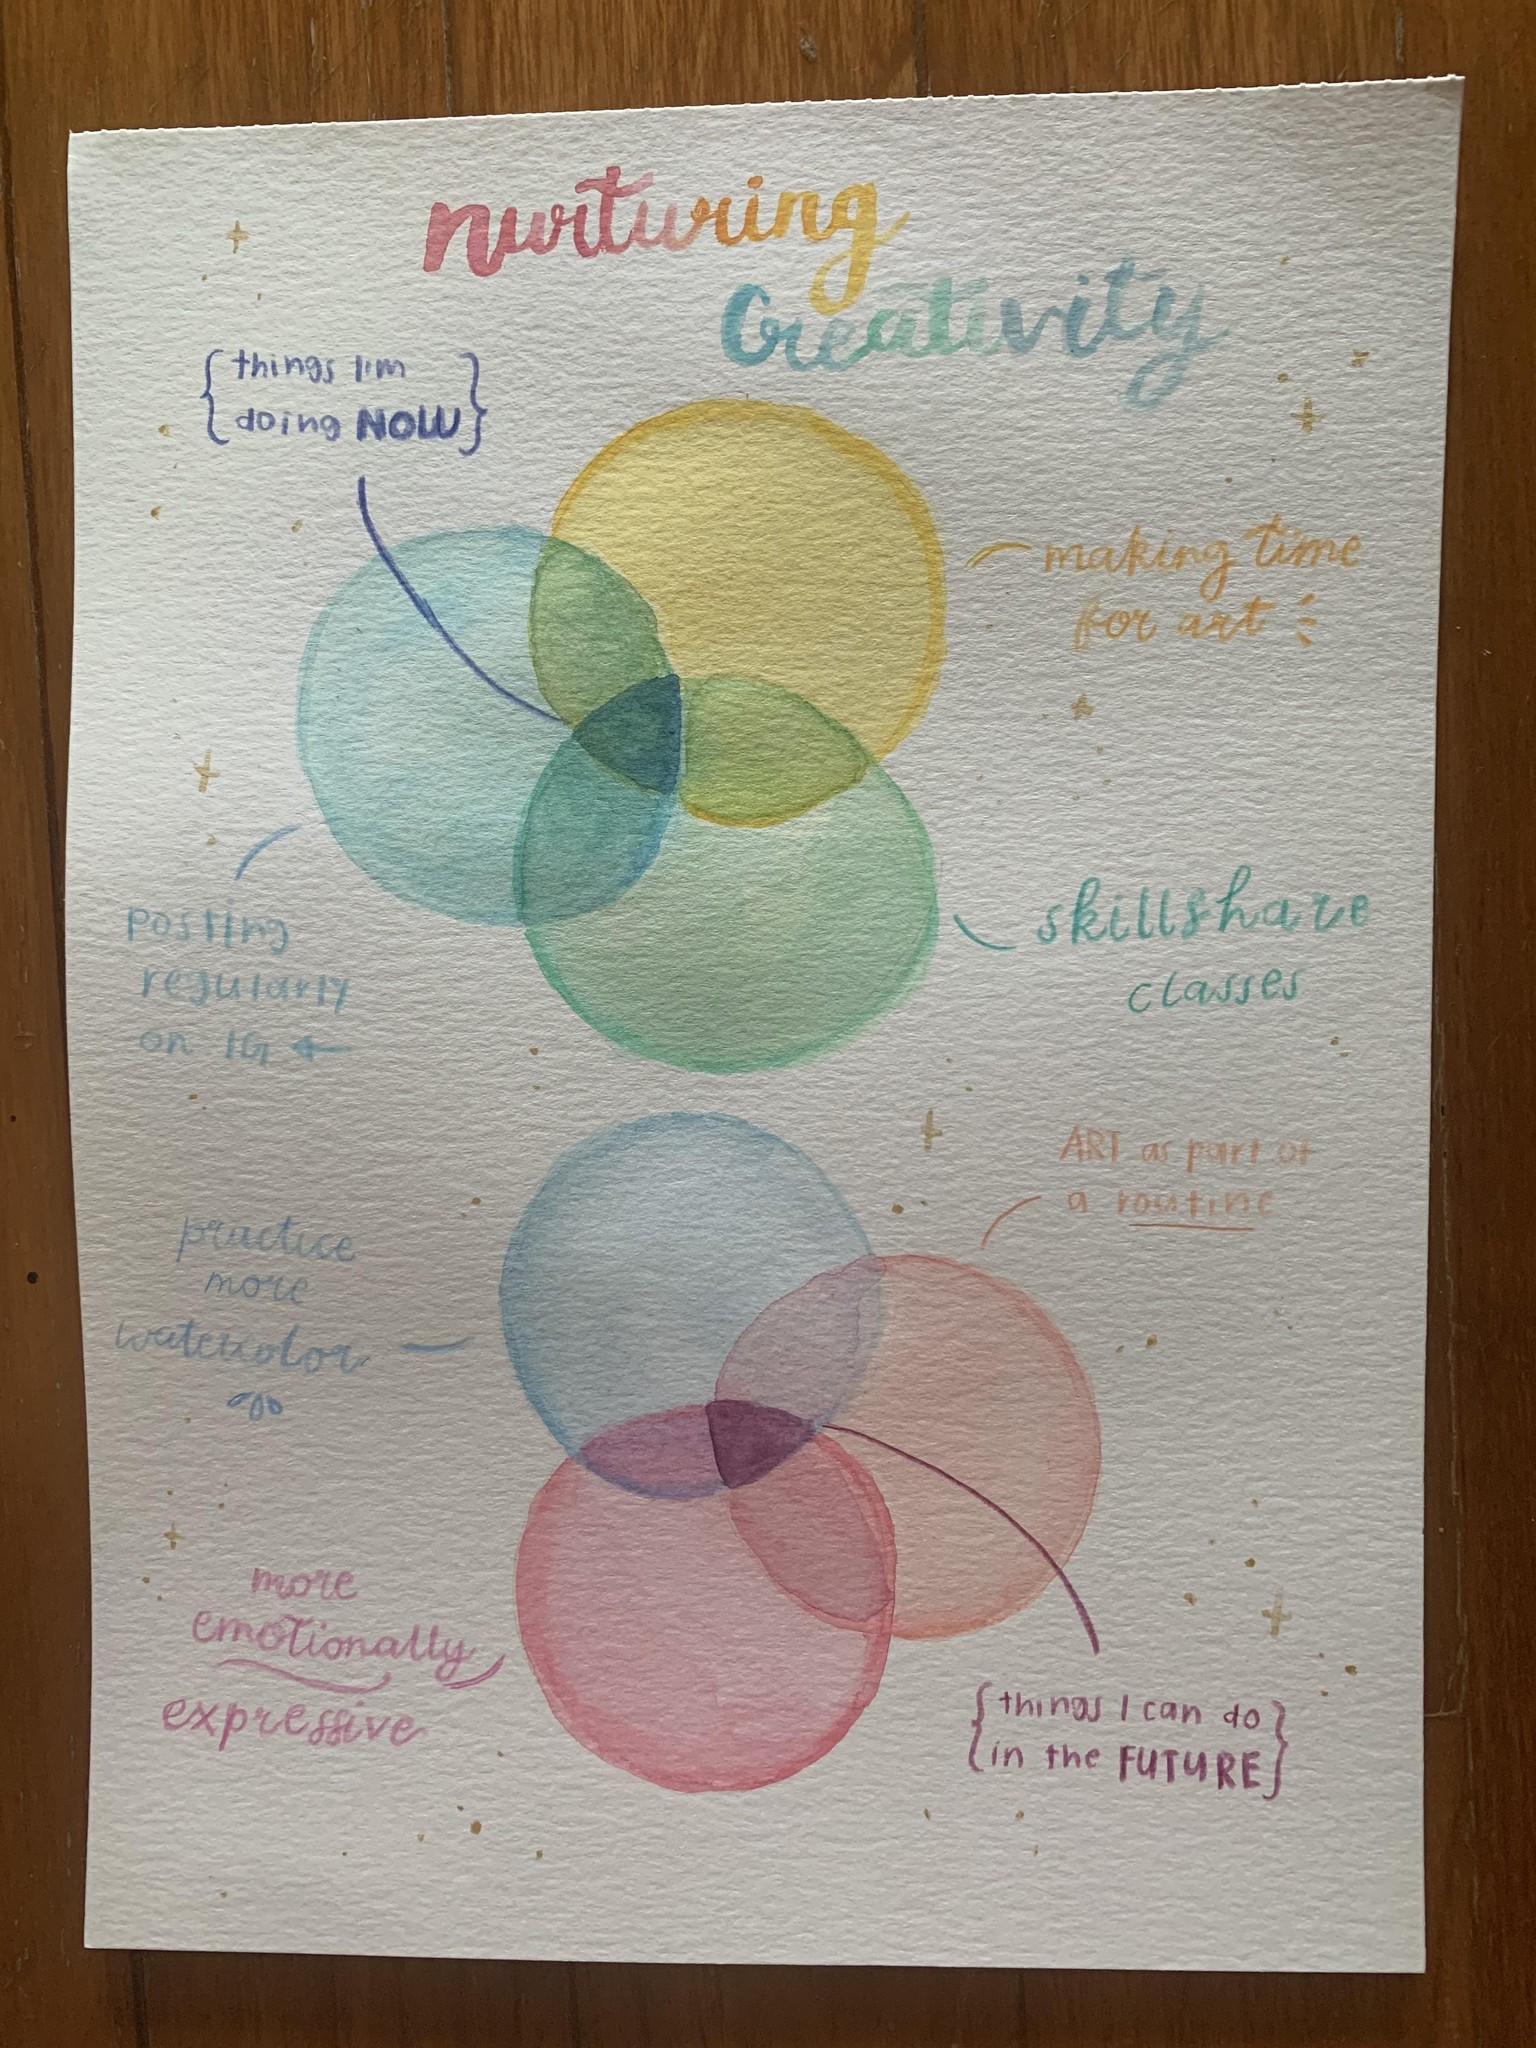 nurturing
Creativity
{things I'm
doing NOW}
making time
for art
posting
regularly
on IG
skillshare
classes
ART as part of
a routine
practice
more
watercolor
more
emotionally
expressive
{things I can do
in the FUTURE}